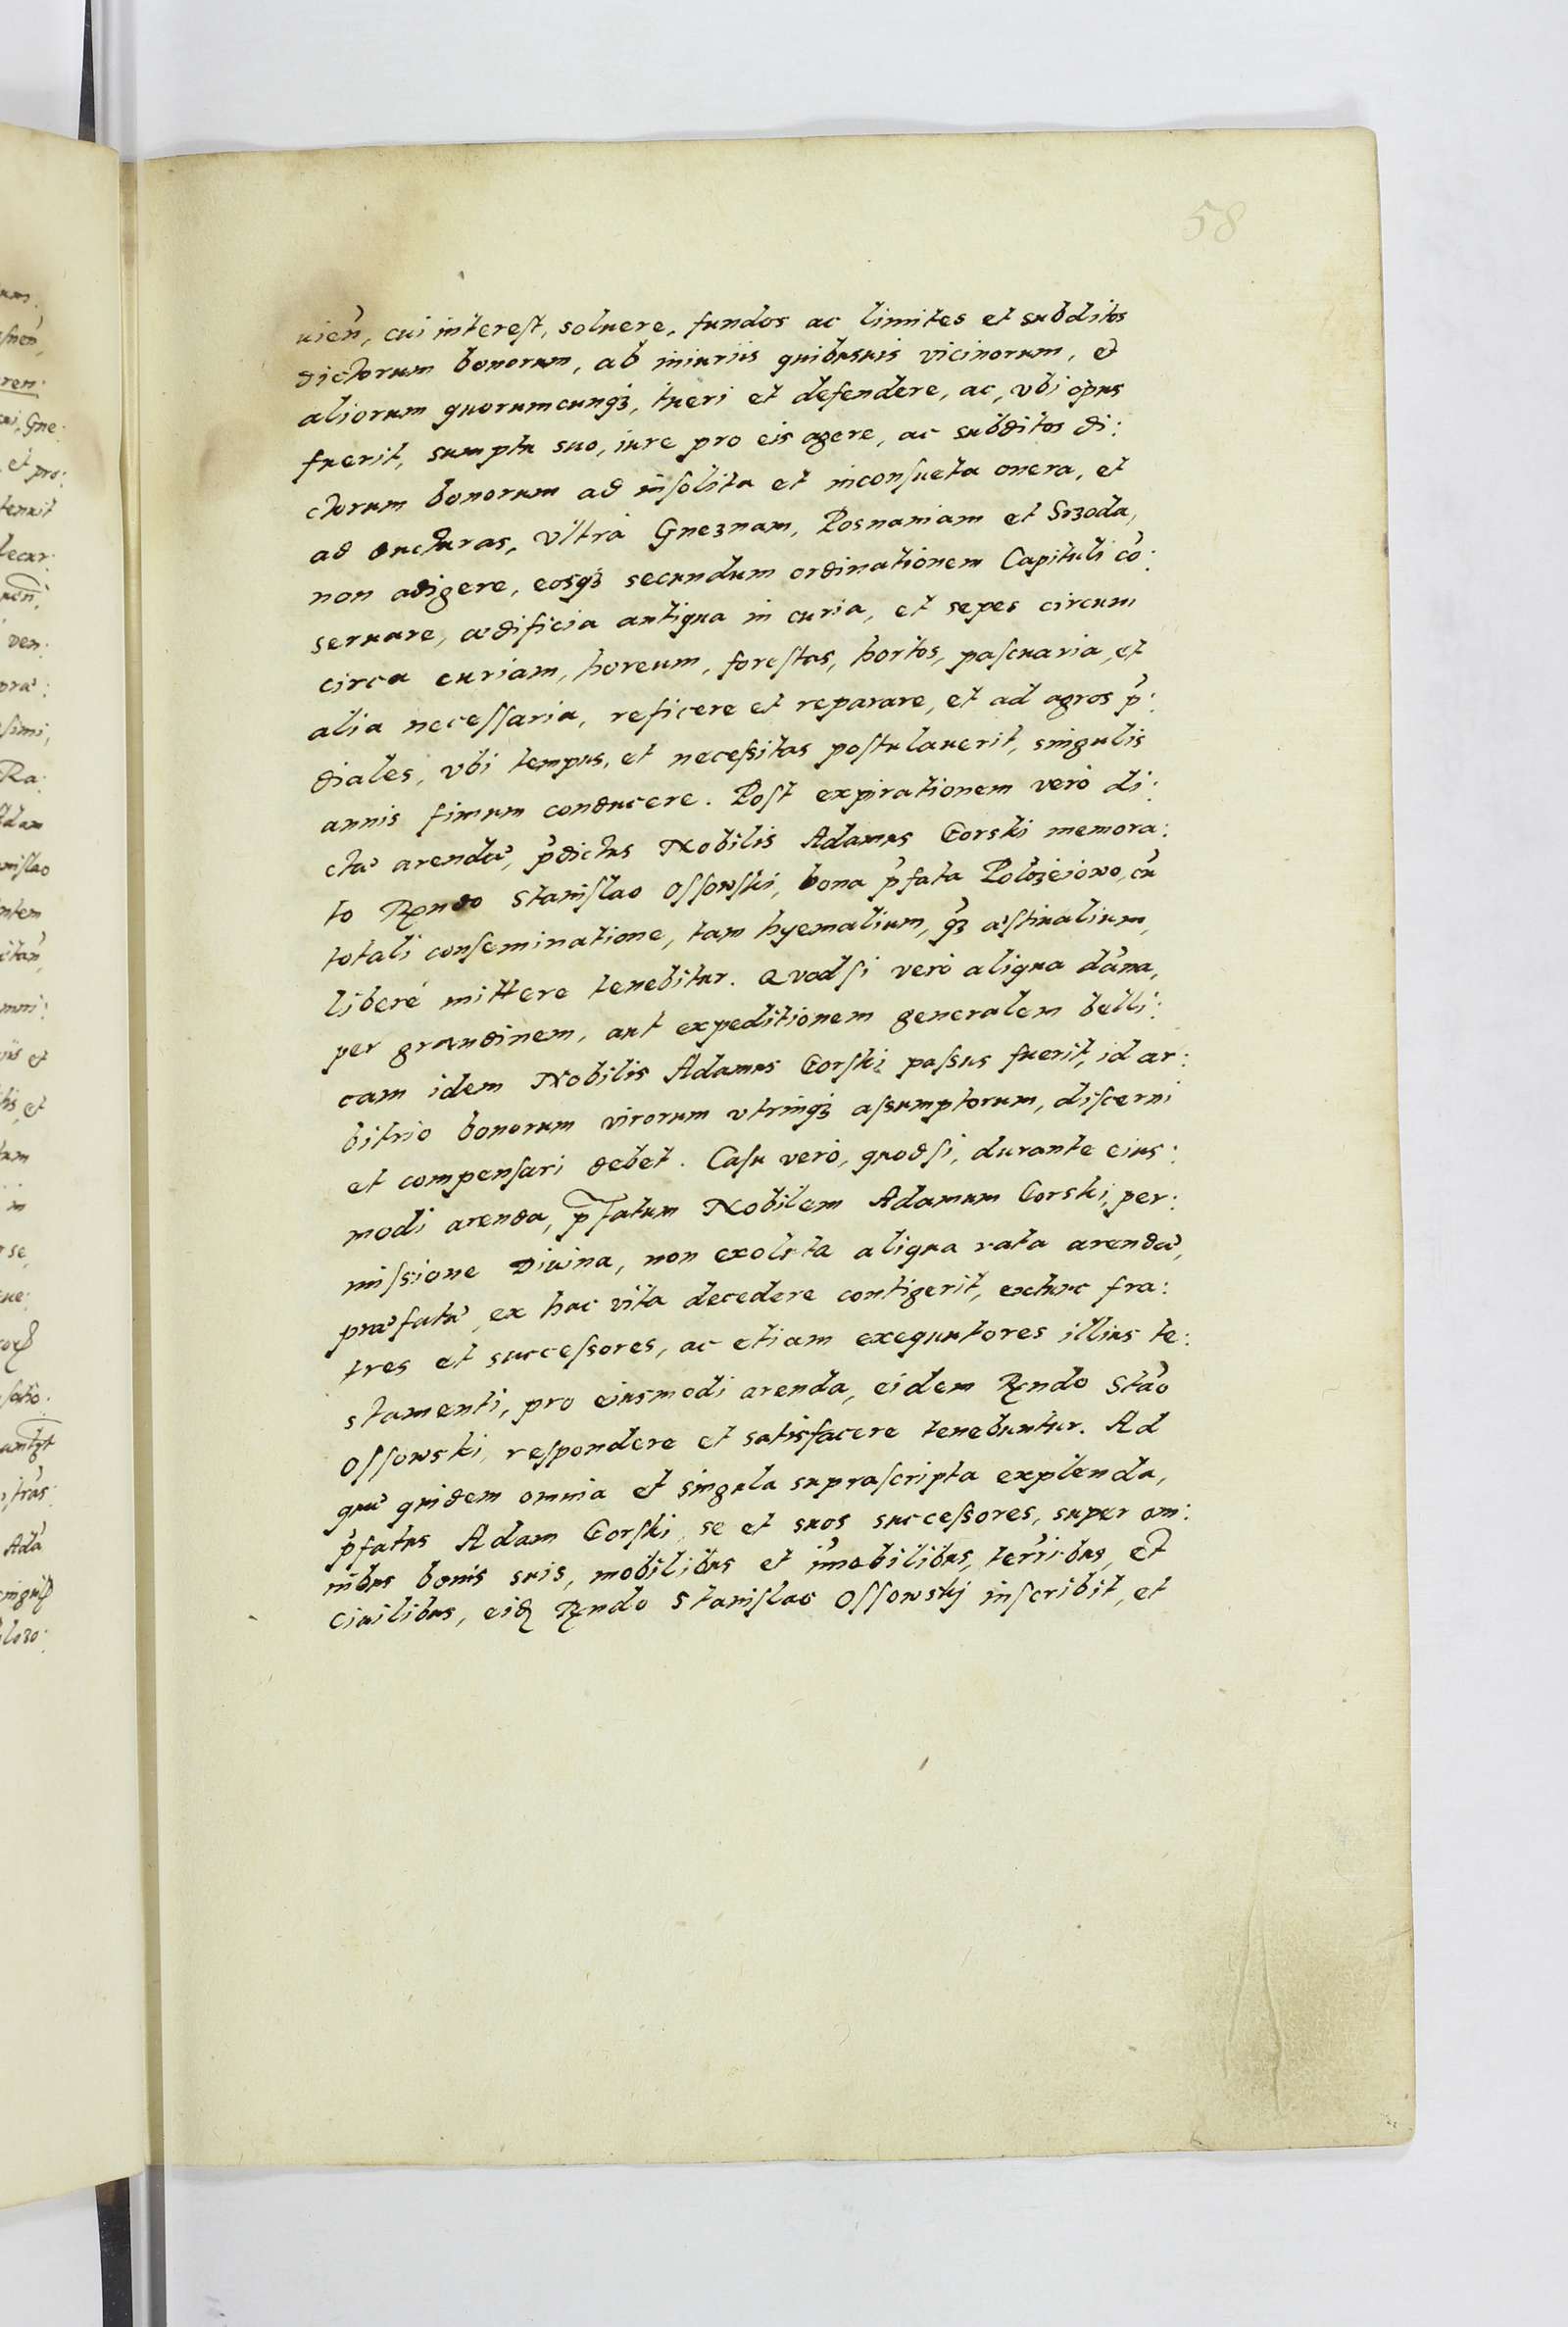 58
uień, cui interest, soluere, fundos ac limites et subditos
dictorum bonorum, ab iniuriis quibusuis vicinorum, et
aliorum quorumcunqꝫ, tueri et defendere, ac, vbi opus
fuerit, sumptu suo, iure pro eis agere, ac subditos di:
ctorum bonorum ad insolita et inconsueta onera, et
ad vecturas, vltrà Gneznam, Posnaniam et Srzoda,
non adigere, eosqꝫ secundum ordinationem Capituli cō:
seruare, ædificia antiqua in curia, et sepes circum
circa curiam, horeum, forestas, hortos, pascuaria, et
alia necessaria, reficere et reparare, et ad agros p̃:
diales, vbi tempus, et necessitas postulauerit, singulis
annis fimum conducere. Post expirationem verò di:
ctæ arendæ, p̃dictus Nobilis Adamus Gorski memora:
to Rṇdo Stanislao Ossowski, bona p̃fata Polozeiowo, cū
totali conseminatione, tam hyemalium, q̃ꝫ æstiualium,
liberé mittere tenebitur. Quodsi verò aliqua dāna,
per grandinem, aut expeditionem generalem belli:
cam idem Nobilis Adamus Gorski passus fuerit, id ar:
bitrio bonorum virorum vtrinqꝫ assumptorum, discerni
et compensari debet. Casu verò, quodsi, durante eius:
modi arenda, p̃fatum Nobilem Adamum Gorski, per:
missione Diuina, non exoluta aliqua rata arendæ,
præfatæ, ex hac vita decedere contigerit, extunc fra:
tres et successores, ac etiam exequutores illius te:
stamenti, pro eiusmodi arenda, eidem Rṇdo Stāo
Ossowski, respondere et satisfacere tenebuntur. Ad
quæ quidem omnia et singula suprascripta explenda,
p̃fatus Adam Gorski se et suos successores, super om:
nibus bonis suis, mobilibus et īmobilibus, terrībus, et
ciuilibus, eidꝫ Rṇdo Stanislao Ossowskj inscribit, et